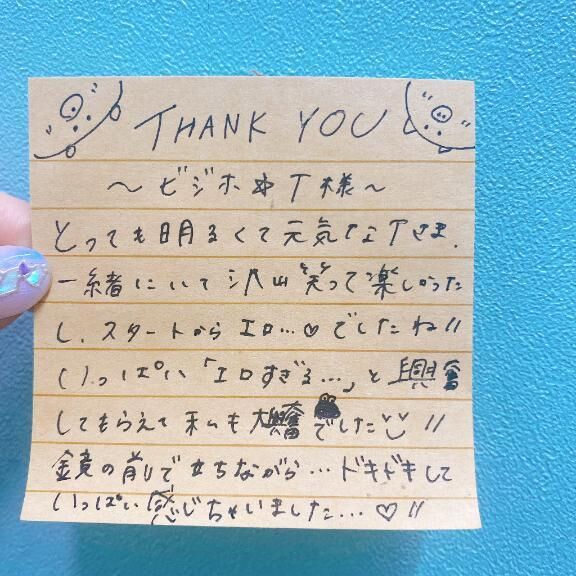 THANK YOU
～ビジホ✽T様～
とっても明るくて元気なTさま.
一緒にいて沢山笑って楽しかった
し、スタートからエロ…♡でしたね!!
いっぱい「エロすぎる…」と興奮
してもらえて私も大興奮でした!!
鏡の前で立ちながら…ドキドキして
いっぱい感じちゃいました…♡!!